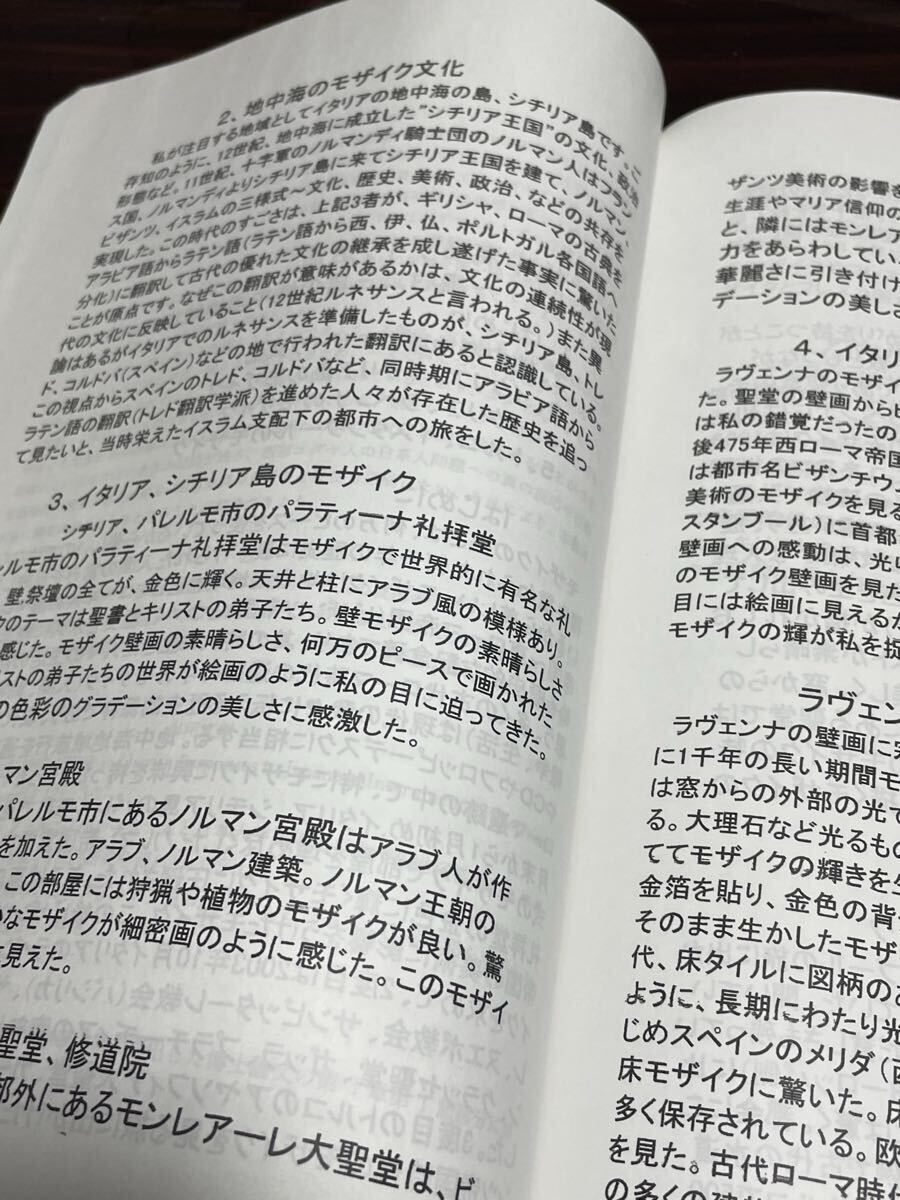 2、地中海のモザイク文化
私が注目する地域としてイタリアの地中海の島、シチリア島です。こ
存知のように、12世紀、地中海に成立した"シチリア王国"の文化、政治
形態など。11世紀、十字軍のノルマンディ騎士団のノルマン人はフラン
ス国、ノルマンディよりシチリア島に来てシチリア王国を建て、ノルマン、
ビザンツ、イスラムの三様式～文化、歴史、美術、政治、などの共存を
実現した。この時代のすごさは、上記3者が、ギリシャ、ローマの古典を
アラビア語からラテン語(ラテン語から西、伊、仏、ポルトガル各国語へ
分化)に翻訳して古代の優れた文化の継承を成し遂げた事実に驚いた
ことが原点です。なぜこの翻訳が意味があるかは、文化の連続性が現
代の文化に反映していること(12世紀ルネサンスと言われる。)また異
論はあるがイタリアでのルネサンスを準備したものが、シチリア島、トレ
ド、コルドバ(スペイン)などの地で行われた翻訳にあると認識している。
この視点からスペインのトレド、コルドバなど、同時期にアラビア語から
ラテン語の翻訳(トレド翻訳学派)を進めた人々が存在した歴史を追っ
て見たいと、当時栄えたイスラム支配下の都市への旅をした。
3、イタリア、シチリア島のモザイク
シチリア、パレルモ市のパラティーナ礼拝堂
レルモ市のパラティーナ礼拝堂はモザイクで世界的に有名な礼
壁、祭壇の全てが、金色に輝く。天井と柱にアラブ風の模様あり。
クのテーマは聖書とキリストの弟子たち。壁モザイクの素晴らしさ
感じた。モザイク壁画の素晴らしさ、何万のピースで画かれた
リストの弟子たちの世界が絵画のように私の目に迫ってきた。
の色彩のグラデーションの美しさに感激した。
マン宮殿
パレルモ市にあるノルマン宮殿はアラブ人が作
を加えた。アラブ、ノルマン建築。ノルマン王朝の
この部屋には狩猟や植物のモザイクが良い。驚
なモザイクが細密画のように感じた。このモザイ
に見えた。
聖堂、修道院
郊外にあるモンレアーレ大聖堂は、ビ
ザンツ美術の影響を
生涯やマリア信仰の
と、隣にはモンレア
力をあらわしてい
華麗さに引き付け
デーションの美しさ
4、イタリ
ラヴェンナのモザイ
た。聖堂の壁画から
は私の錯覚だったの
後475年西ローマ帝国
は都市名ビザンチウ
美術のモザイクを見る
スタンブール)に首都
壁画への感動は、光り
のモザイク壁画を見た
目には絵画に見えるか
モザイクの輝が私を捉
ラヴェン
ラヴェンナの壁画に
に1千年の長い期間モ
は窓からの外部の光で
る。大理石など光るもの
ててモザイクの輝きを生
金箔を貼り、金色の背
そのまま生かしたモザ
代、床タイルに図柄のあ
ように、長期にわたり光
じめスペインのメリダ(西
床モザイクに驚いた。床
多く保存されている。欧
を見た。古代ローマ時代
の多くの建